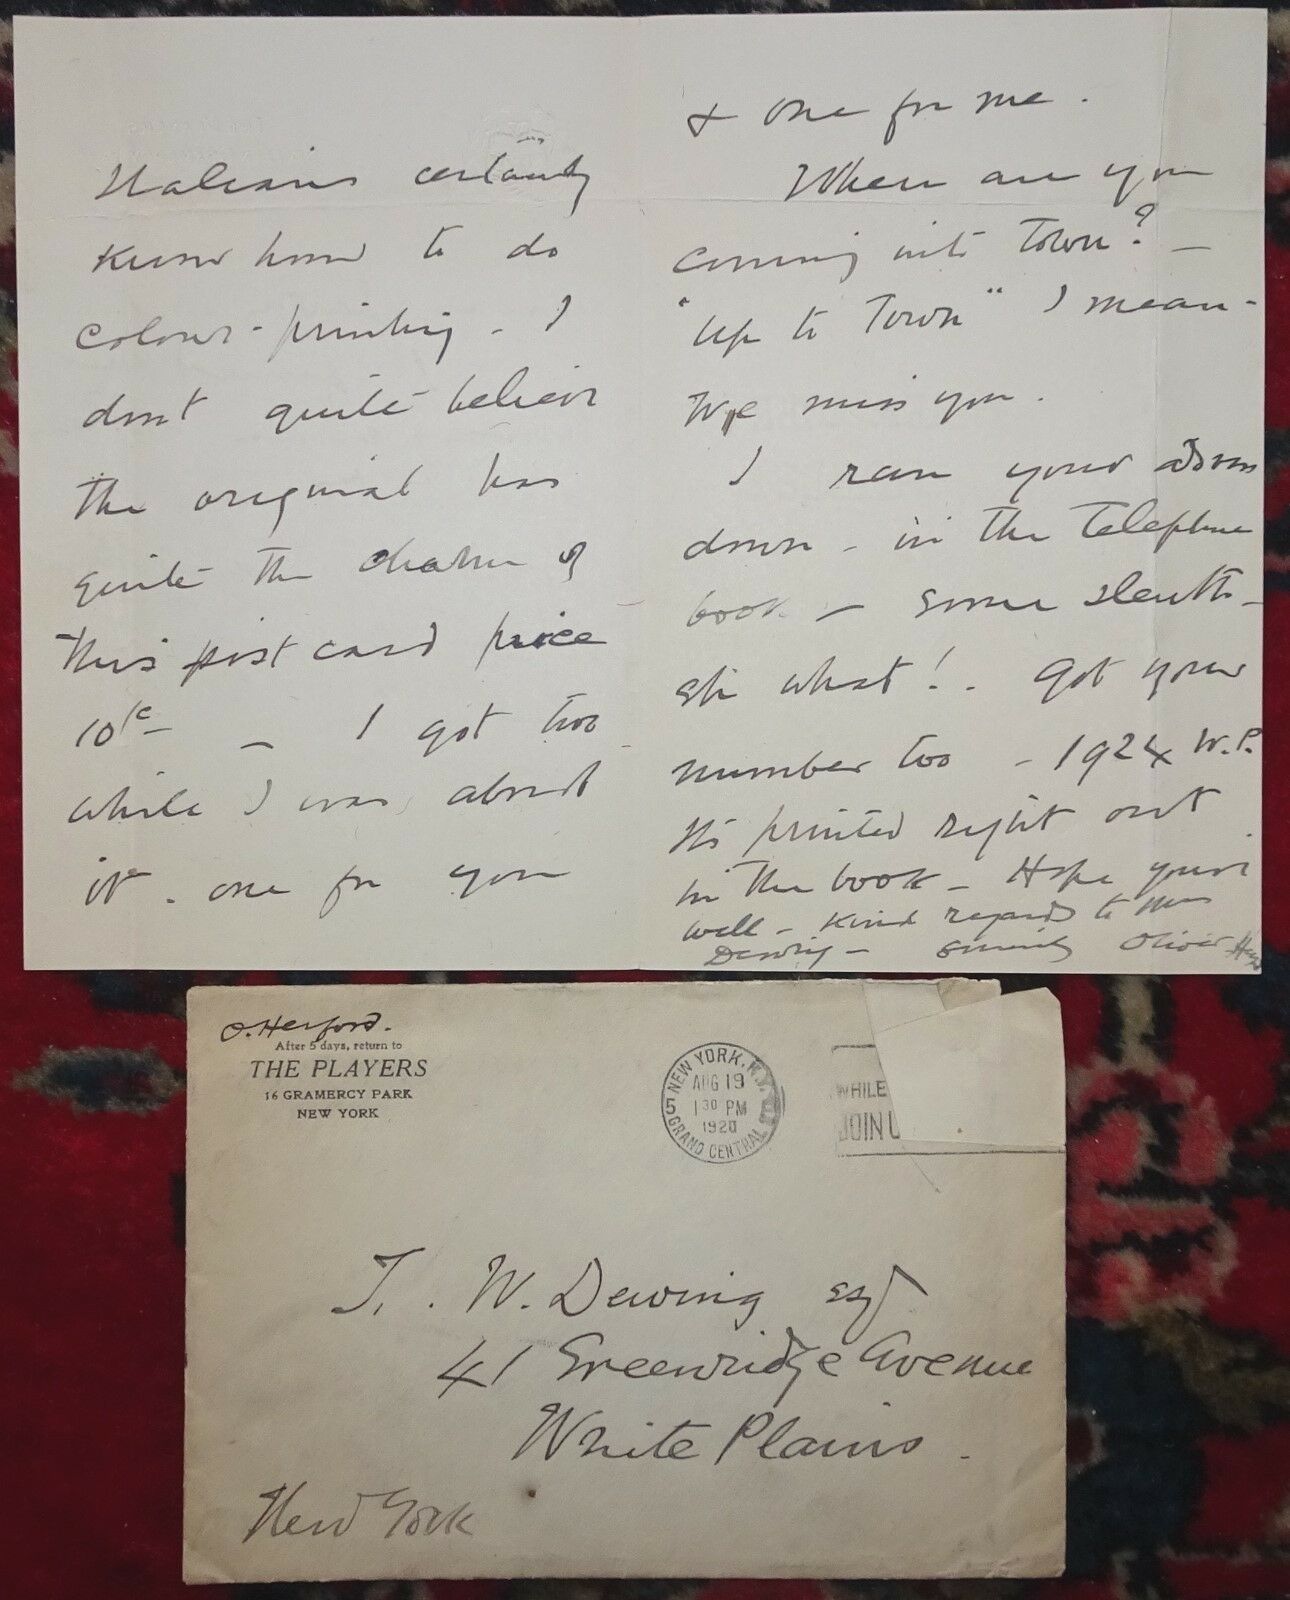 Italians certainly
know how to do
colour-printing - I
don't quite believe
the original has
quite the charm of
this post card price
10c - I got two
while I was about
it. one for you
& one for me.
When are you
coming into Town? -
"up to Town" I mean -
We miss you.
I ran your address
down - in the Telephone
book - some sleuth-
eh what! . Got your
number too - 1924 W.P.
It's printed right out
in the book - Hope you're
well - Kind regards to Mrs
Dewing - Sincerely Oliver
O. Herford.
After 5 days, return to
THE PLAYERS
16 GRAMERCY PARK
NEW YORK
NEW YORK, N.Y.
AUG 19
1 30 PM
1920
5 GRAND CENTRAL
WHILE
JOIN U
T. W. Dewing esq
41 Greenridge Avenue
White Plains.
New York